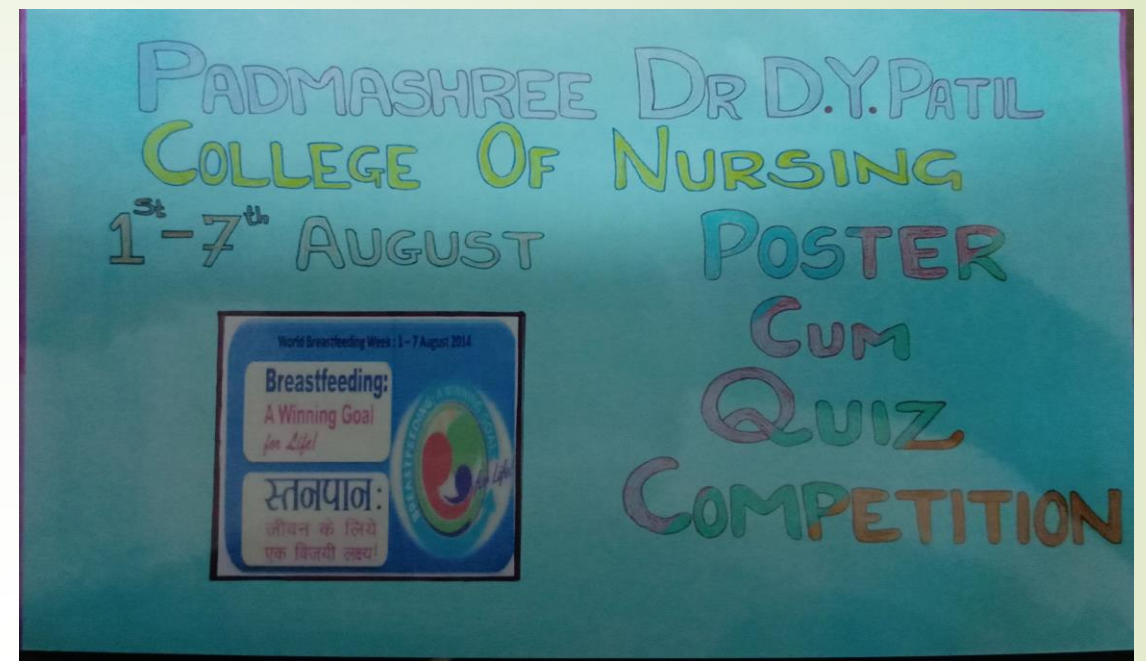 PADMASHREE DR D.Y. PATIL
COLLEGE OF NURSING
1st-7th AUGUST
POSTER
CUM
QUIZ
COMPETITION
World Breastfeeding Week : 1 – 7 August 2014
Breastfeeding:
A Winning Goal
for Life!
स्तनपान:
जीवन के लिये
एक विजयी लक्ष्य!
BREASTFEEDING: A WINNING GOAL
for Life!